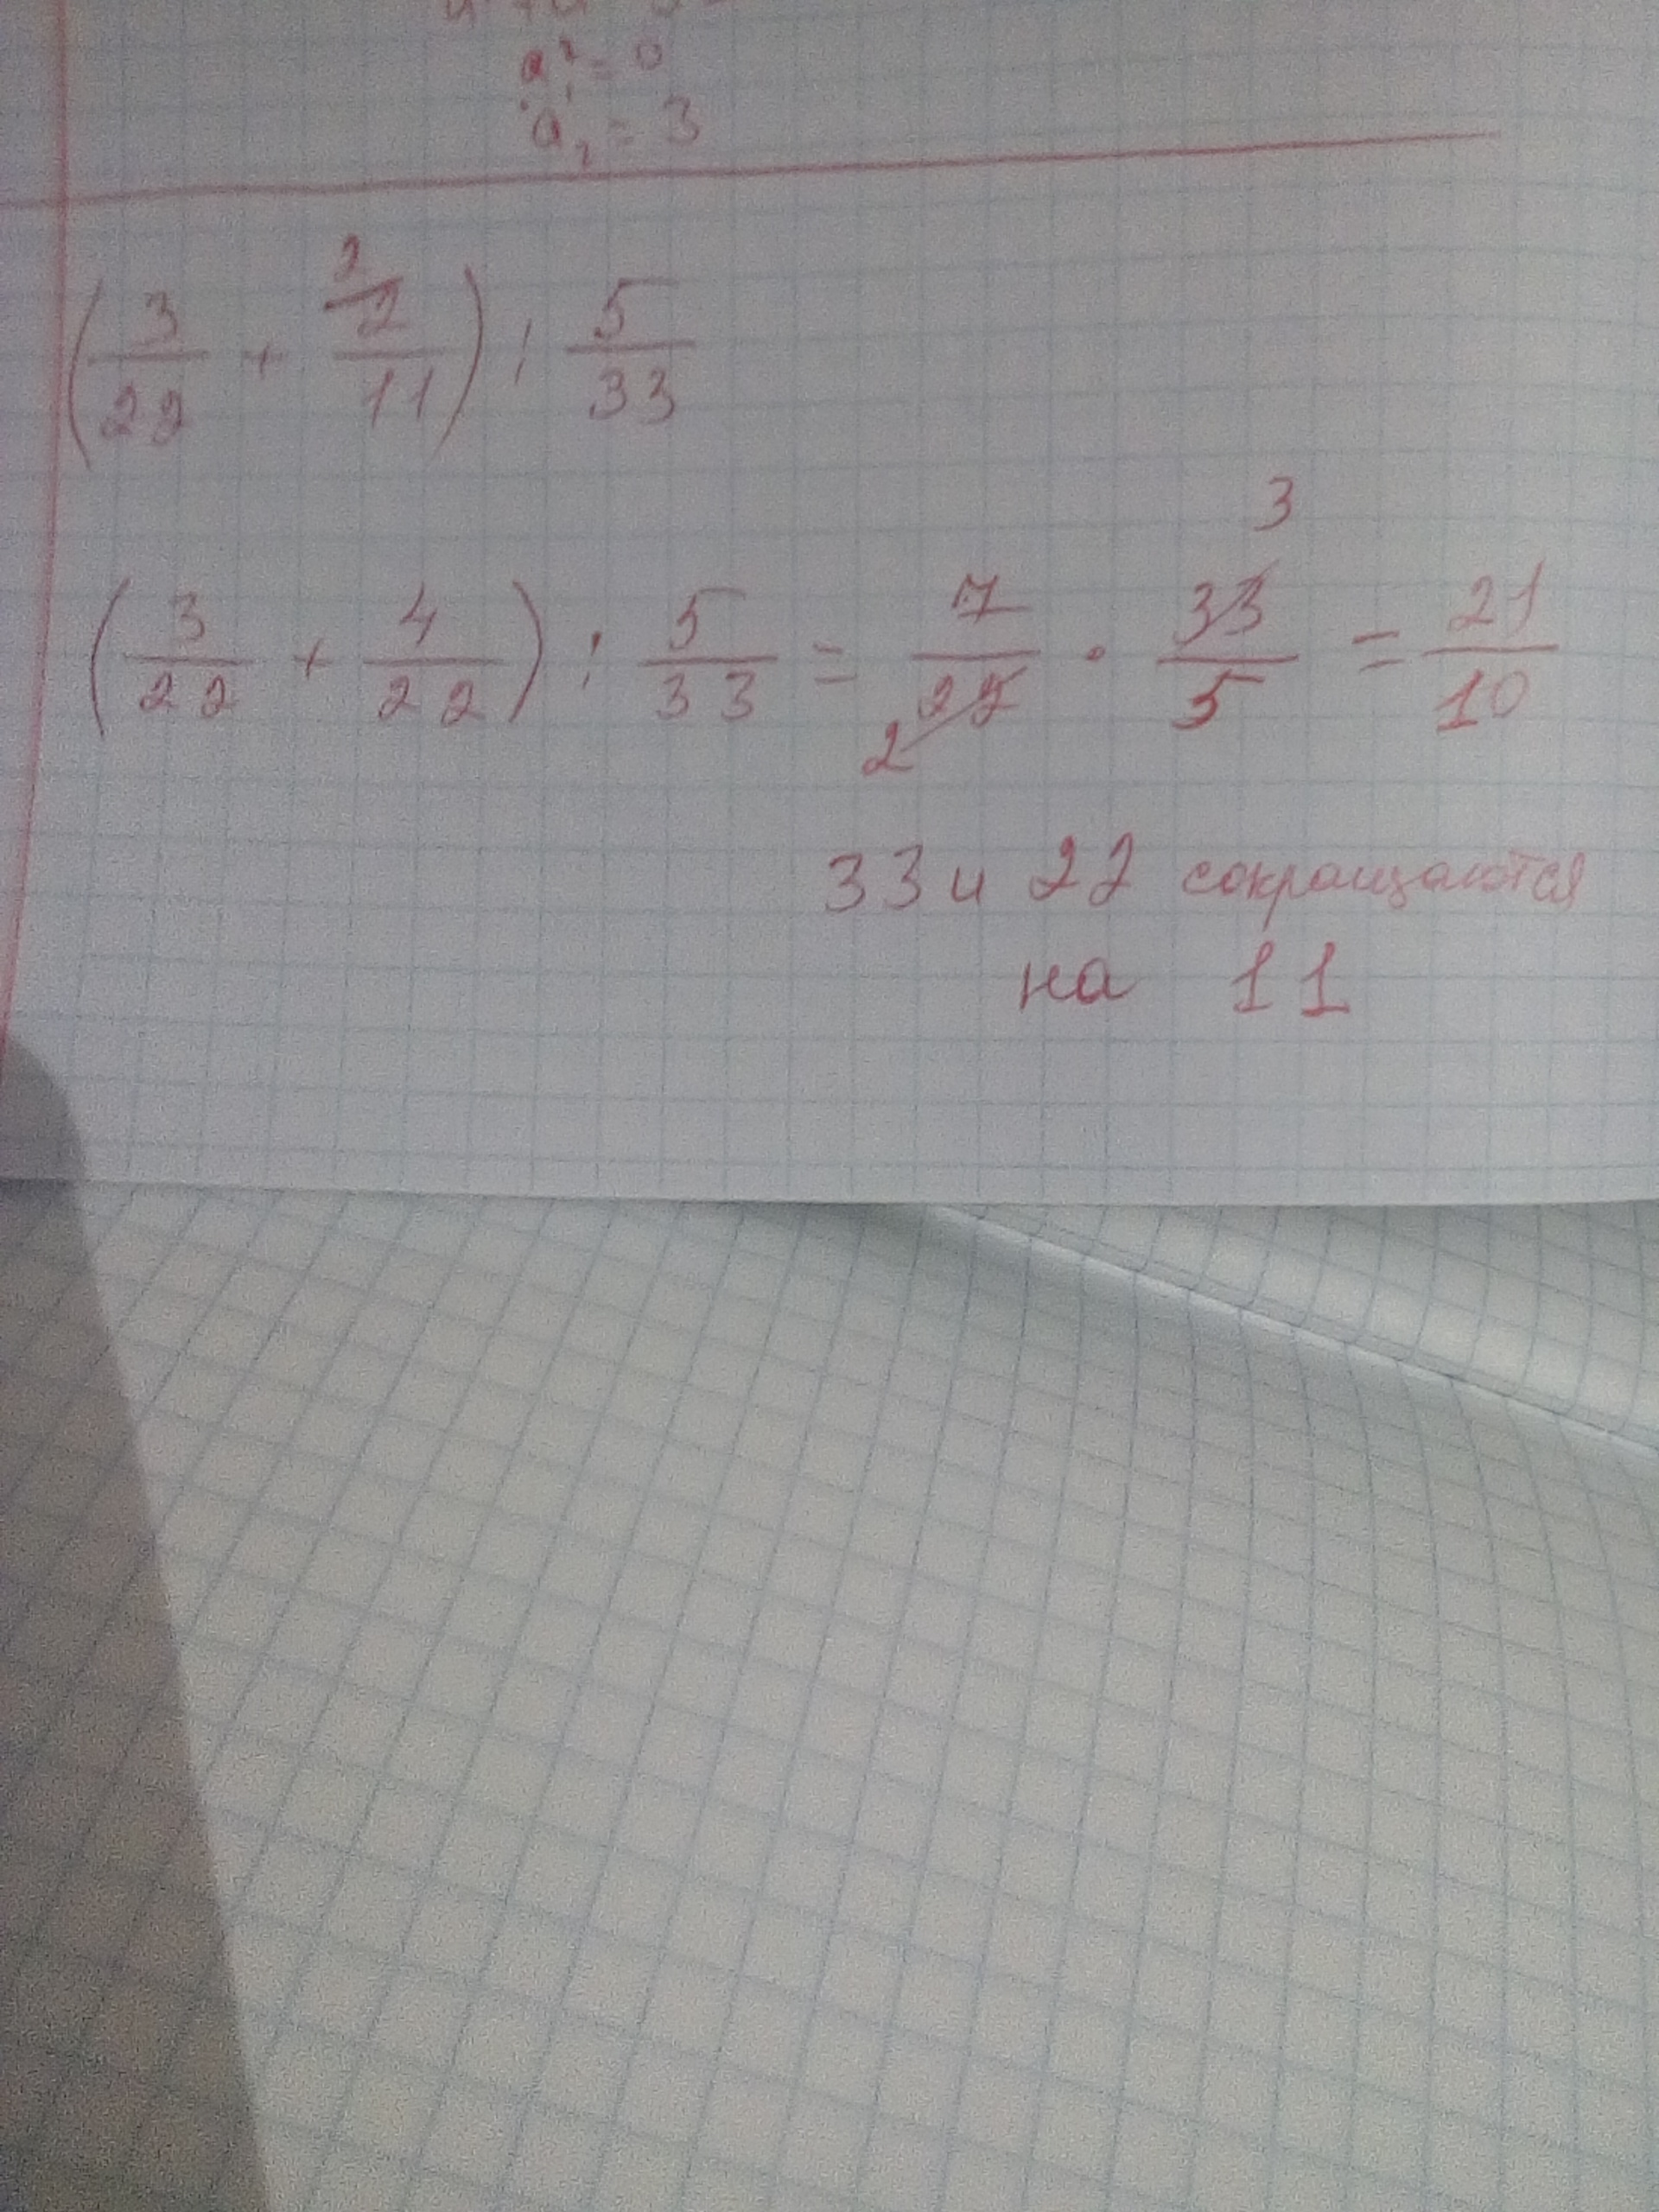 a₁ = 0
a₂ = 3
(3/22 + 2/11) : 5/33
(3/22 + 4/22) : 5/33 = 7/22 · 33/5 = 21/10
33 и 22 сокращаются
на 11